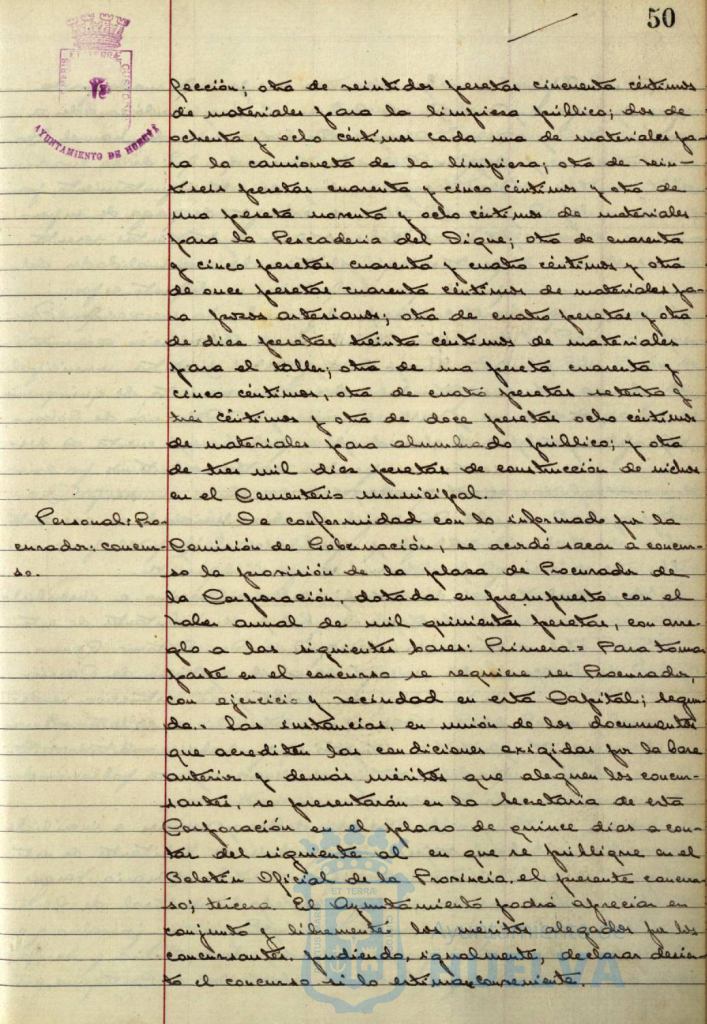 50
AYUNTAMIENTO DE HUELVA
pección; otra de veintidos pesetas cincuenta céntimos
de materiales para la limpieza público; dos de
ochenta y ocho céntimos cada una de materiales pa-
ra la camioneta de la limpieza; otra de vein-
tiseis pesetas cuarenta y cinco céntimos y otra de
una peseta noventa y ocho céntimos de materiales
para la Pescaderia del Dique; otra de cuarenta
y cinco pesetas cuarenta y cuatro céntimos y otra
de once pesetas cuarenta céntimos de materiales pa-
ra pozos artesianos; otra de cuatro pesetas y otra
de diez pesetas treinta céntimos de materiales
para el taller; otra de una peseta cuarenta y
cinco céntimos, otra de cuatro pesetas setenta y
tres céntimos y otra de doce pesetas ocho céntimos
de materiales para alumbrado público; y otra
de tres mil diez pesetas de construcción de nichos
en el Cementerio municipal.
Personal: Pro-
curador: concur-
so.
De conformidad con lo informado por la
Comisión de Gobernación, se acordó sacar a concur-
so la provisión de la plaza de Procurador de
la Corporación, dotada en presupuesto con el
haber anual de mil quinientas pesetas, con arre-
glo a las siguientes bases: Primera = Para tomar
parte en el concurso se requiere ser Procurador,
con ejercicio y vecindad en esta Capital; segun-
da.= Las instancias, en unión de los documentos
que acrediten las condiciones exigidas por la base
anterior y demás méritos que aleguen los concur-
santes, se presentarán en la Secretaria de esta
Corporación en el plazo de quince dias a con-
tar del siguiente al en que se publique en el
Boletin Oficial de la Provincia. el presente concur-
so; tercera. El Ayuntamiento podrá apreciar en
conjunto y libremente los méritos alegados por los
concursantes, pudiendo, igualmente, declarar desier-
to el concurso si lo estima conveniente.
ET TERRÆ
HUELVA